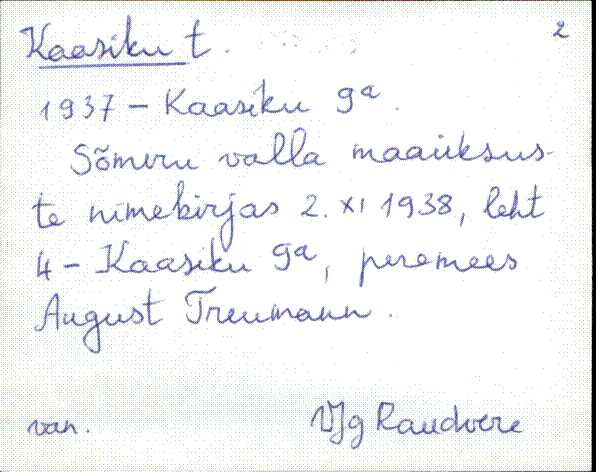 Kaasiku t. 2
1937 – Kaasiku 9a.
Sõmeru valla maaüksus-
te nimekirjas 2. XI 1938, leht
4 – Kaasiku 9a, peremees
August Treumann.
van. VJg Raudvere